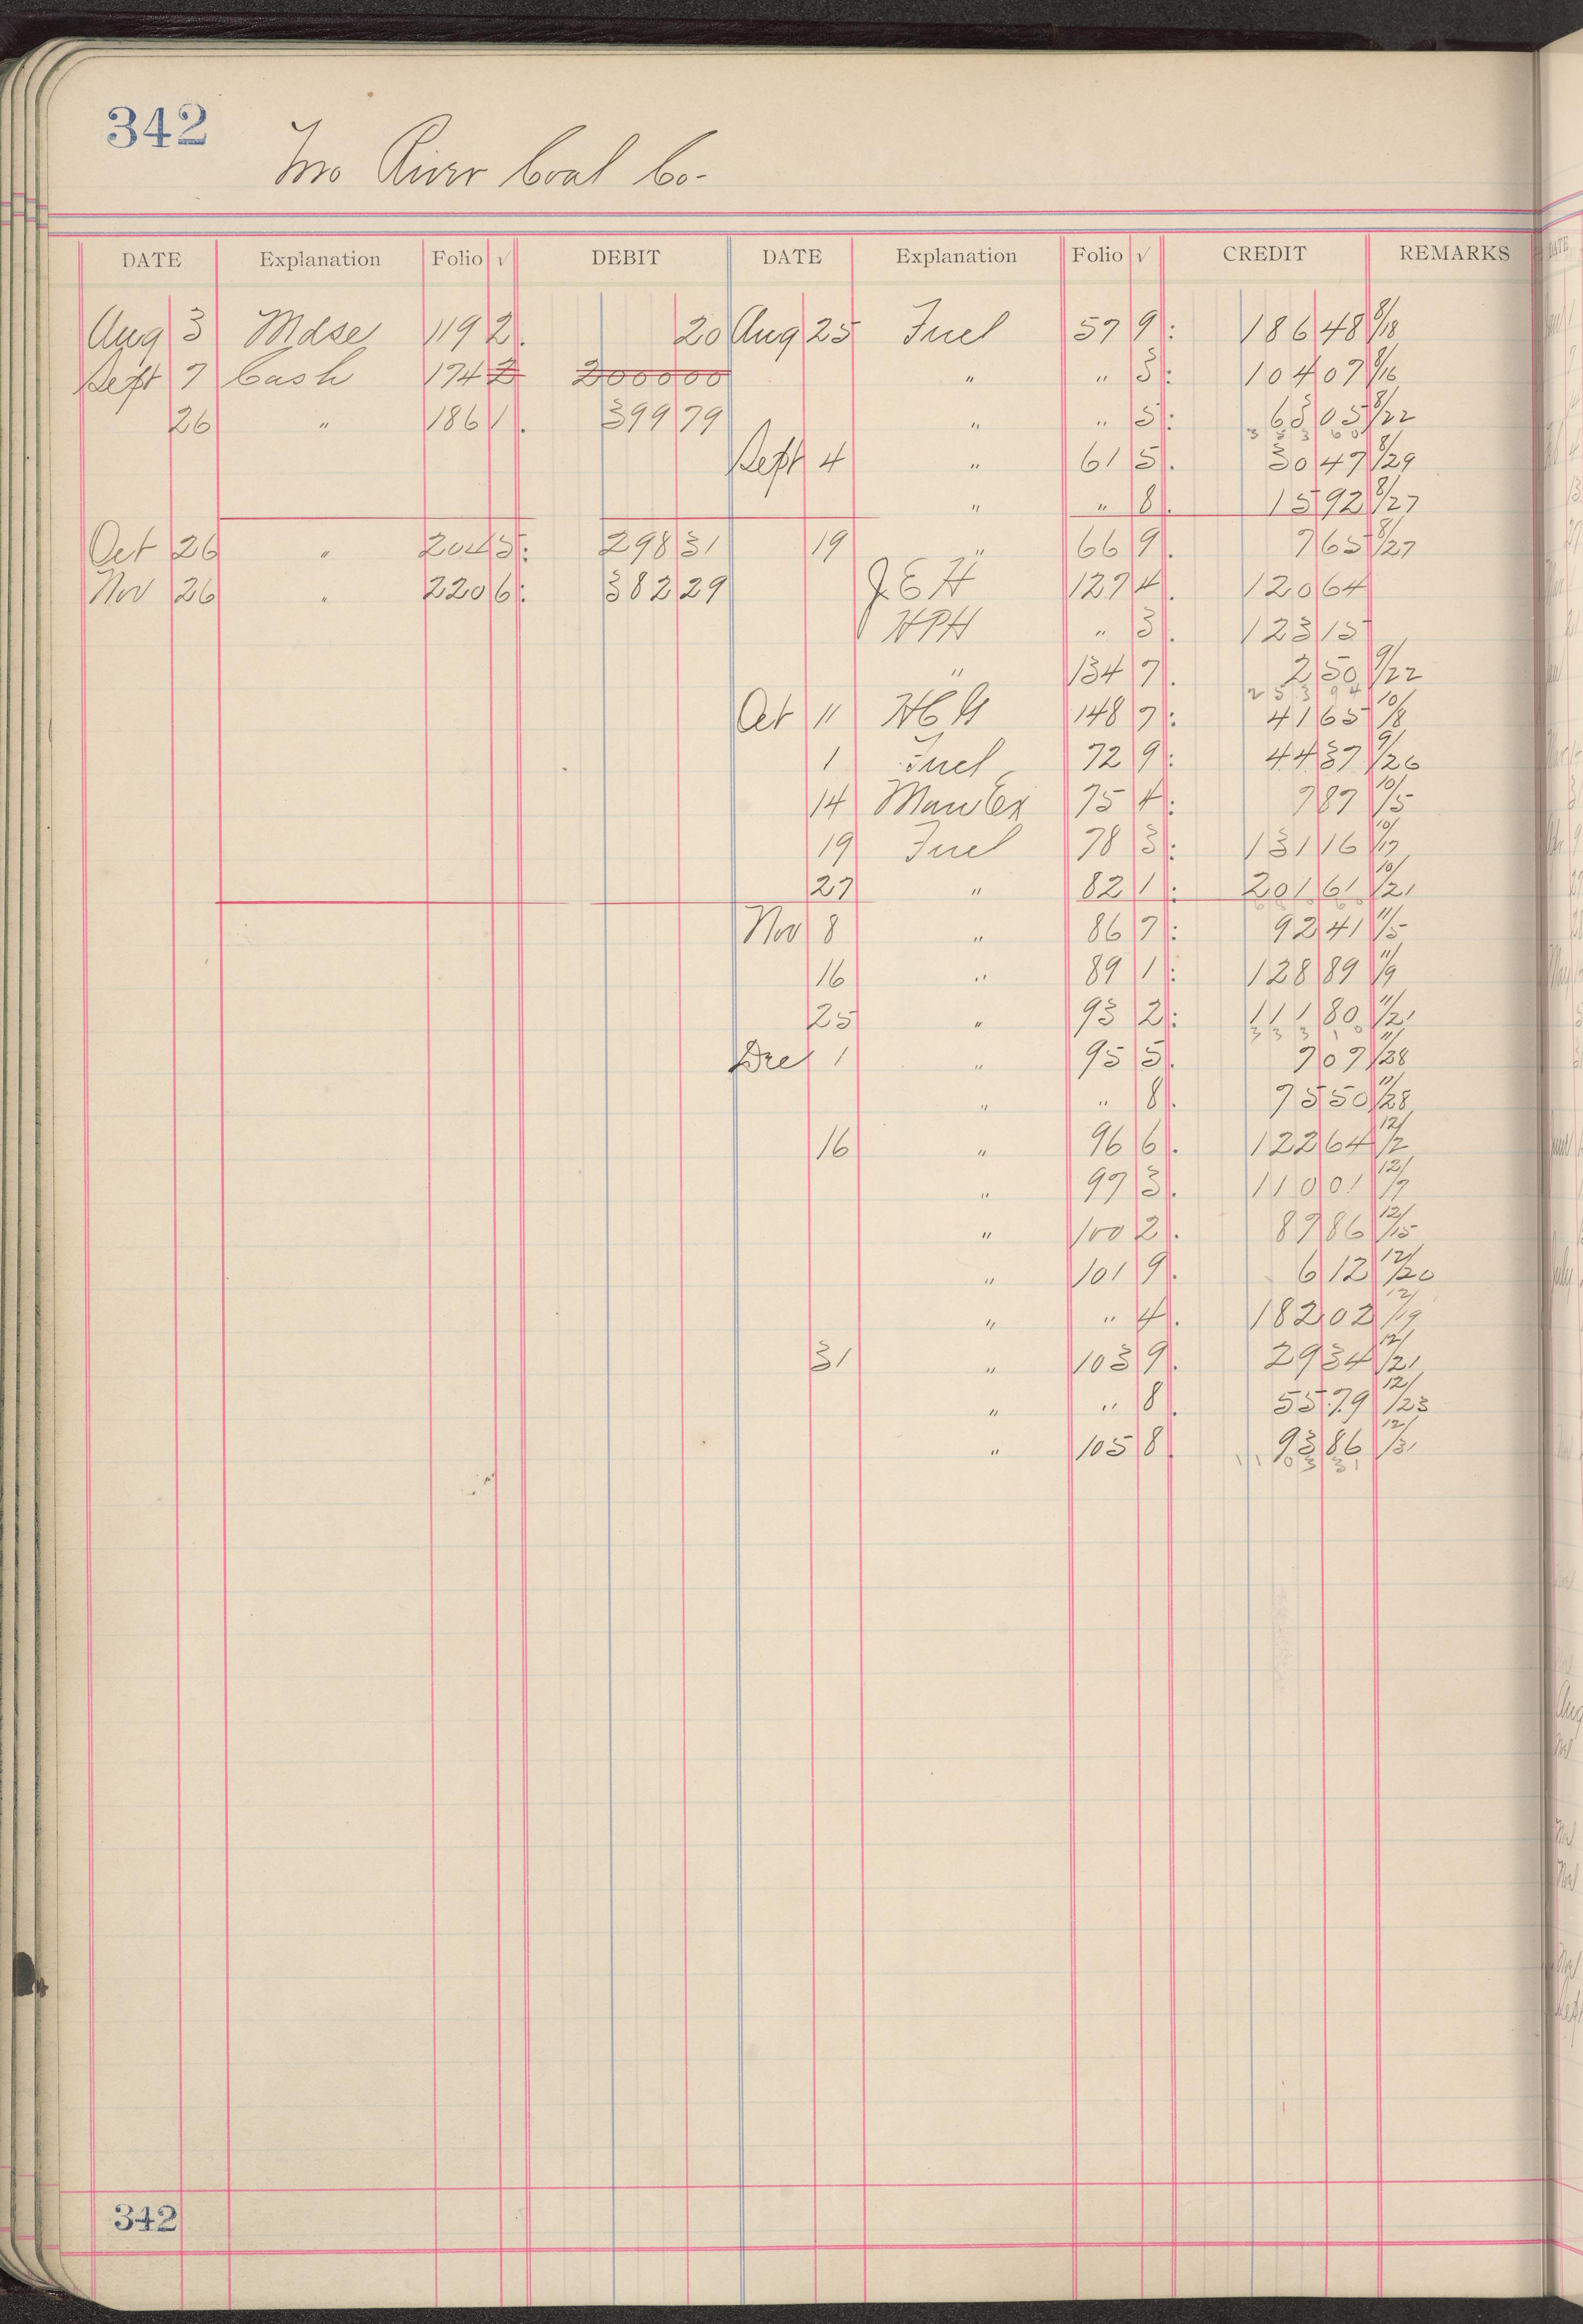 342
Mo River Coal Co-
DATE Explanation Folio √ DEBIT DATE Explanation Folio √ CREDIT REMARKS
Aug 3 Mdse 119 2. 20 Aug 25 Fuel 57 9: 186 48 8/18
Sept 7 Cash 174 2 2000 00 " " 3: 104 07 8/16
26 " 186 1. 399 79 " " 5: 63 05 8/22
3 8 3 6 0
Sept 4 " 61 5. 30 47 8/29
" " 8. 15 92 8/27
Oct 26 " 204 5: 298 31 19 " 66 9. 7 65 8/27
Nov 26 " 220 6: 382 29 J E H 127 4. 120 64
HPH " 3. 123 15
" 134 7. 2 50 9/22
2 5 3 9 4
Oct 11 H C G 148 7: 41 65 10/8
1 Fuel 72 9: 44 37 9/26
14 Man Ex 75 4: 7 87 10/5
19 Fuel 78 3: 131 16 10/17
27 " 82 1: 201 61 10/21
Nov 8 " 86 7: 92 41 11/5
16 " 89 1: 128 89 11/9
25 " 93 2: 111 80 11/21
3 3 3 1 0
Dec 1 " 95 5. 7 07 11/28
" " 8. 75 50 11/28
16 " 96 6. 122 64 12/2
" 97 3. 110 01 12/7
" 100 2. 87 86 12/15
" 101 9. 6 12 12/20
" " 4. 182 02 12/19
31 " 103 9. 29 34 12/21
" " 8. 55 79 12/23
" 105 8. 93 86 12/31
1 1 0 3 3 1
342